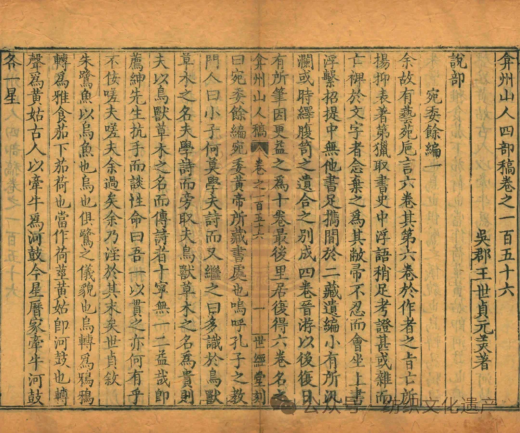 弇州山人四部稿卷之一百五十六
吳郡王世貞元美著
說部
宛委餘編一
余故有藝苑巵言六卷其第六卷於作者之旨亡所
揚抑表著第獵取書史中浮語稍足考證甚或雜而
亡裨於文字者念棄之為其敝帚不忍而會坐上書
浮繫招提中無他書足擕間於二藏遺編小有所汎
瀾或時繹腹笥之遺合之別成四卷晉將以後復日
有所筆因更益之為十卷最後里居復得六卷名之
弇州山人稿 卷之一百五十六 一 世經堂刻
曰宛委餘編宛委黃帝所藏書處也嗚呼孔子之教
門人曰小子何莫學夫詩而又繼之曰多識於鳥獸
草木之名夫學詩而旁取夫鳥獸草木之名為貴則
夫以鳥獸草木之名而傳詩者十寧無一二益哉即
薦紳先生抗手而談性命曰吾一以貫之亦何有乎
不佞嗟夫嗟夫余過矣余乃淫於其末矣世貞敘
朱鷺魚以烏魚也烏也俱鷺之儀貌也烏轉為鴉鴉
轉為雅食茄下茄荷也當作荷葉黃姑即河鼓也轉
聲為黃姑古人以牽牛為河鼓今星曆家牽牛河鼓
各一星
公众号·纺织文化遗产